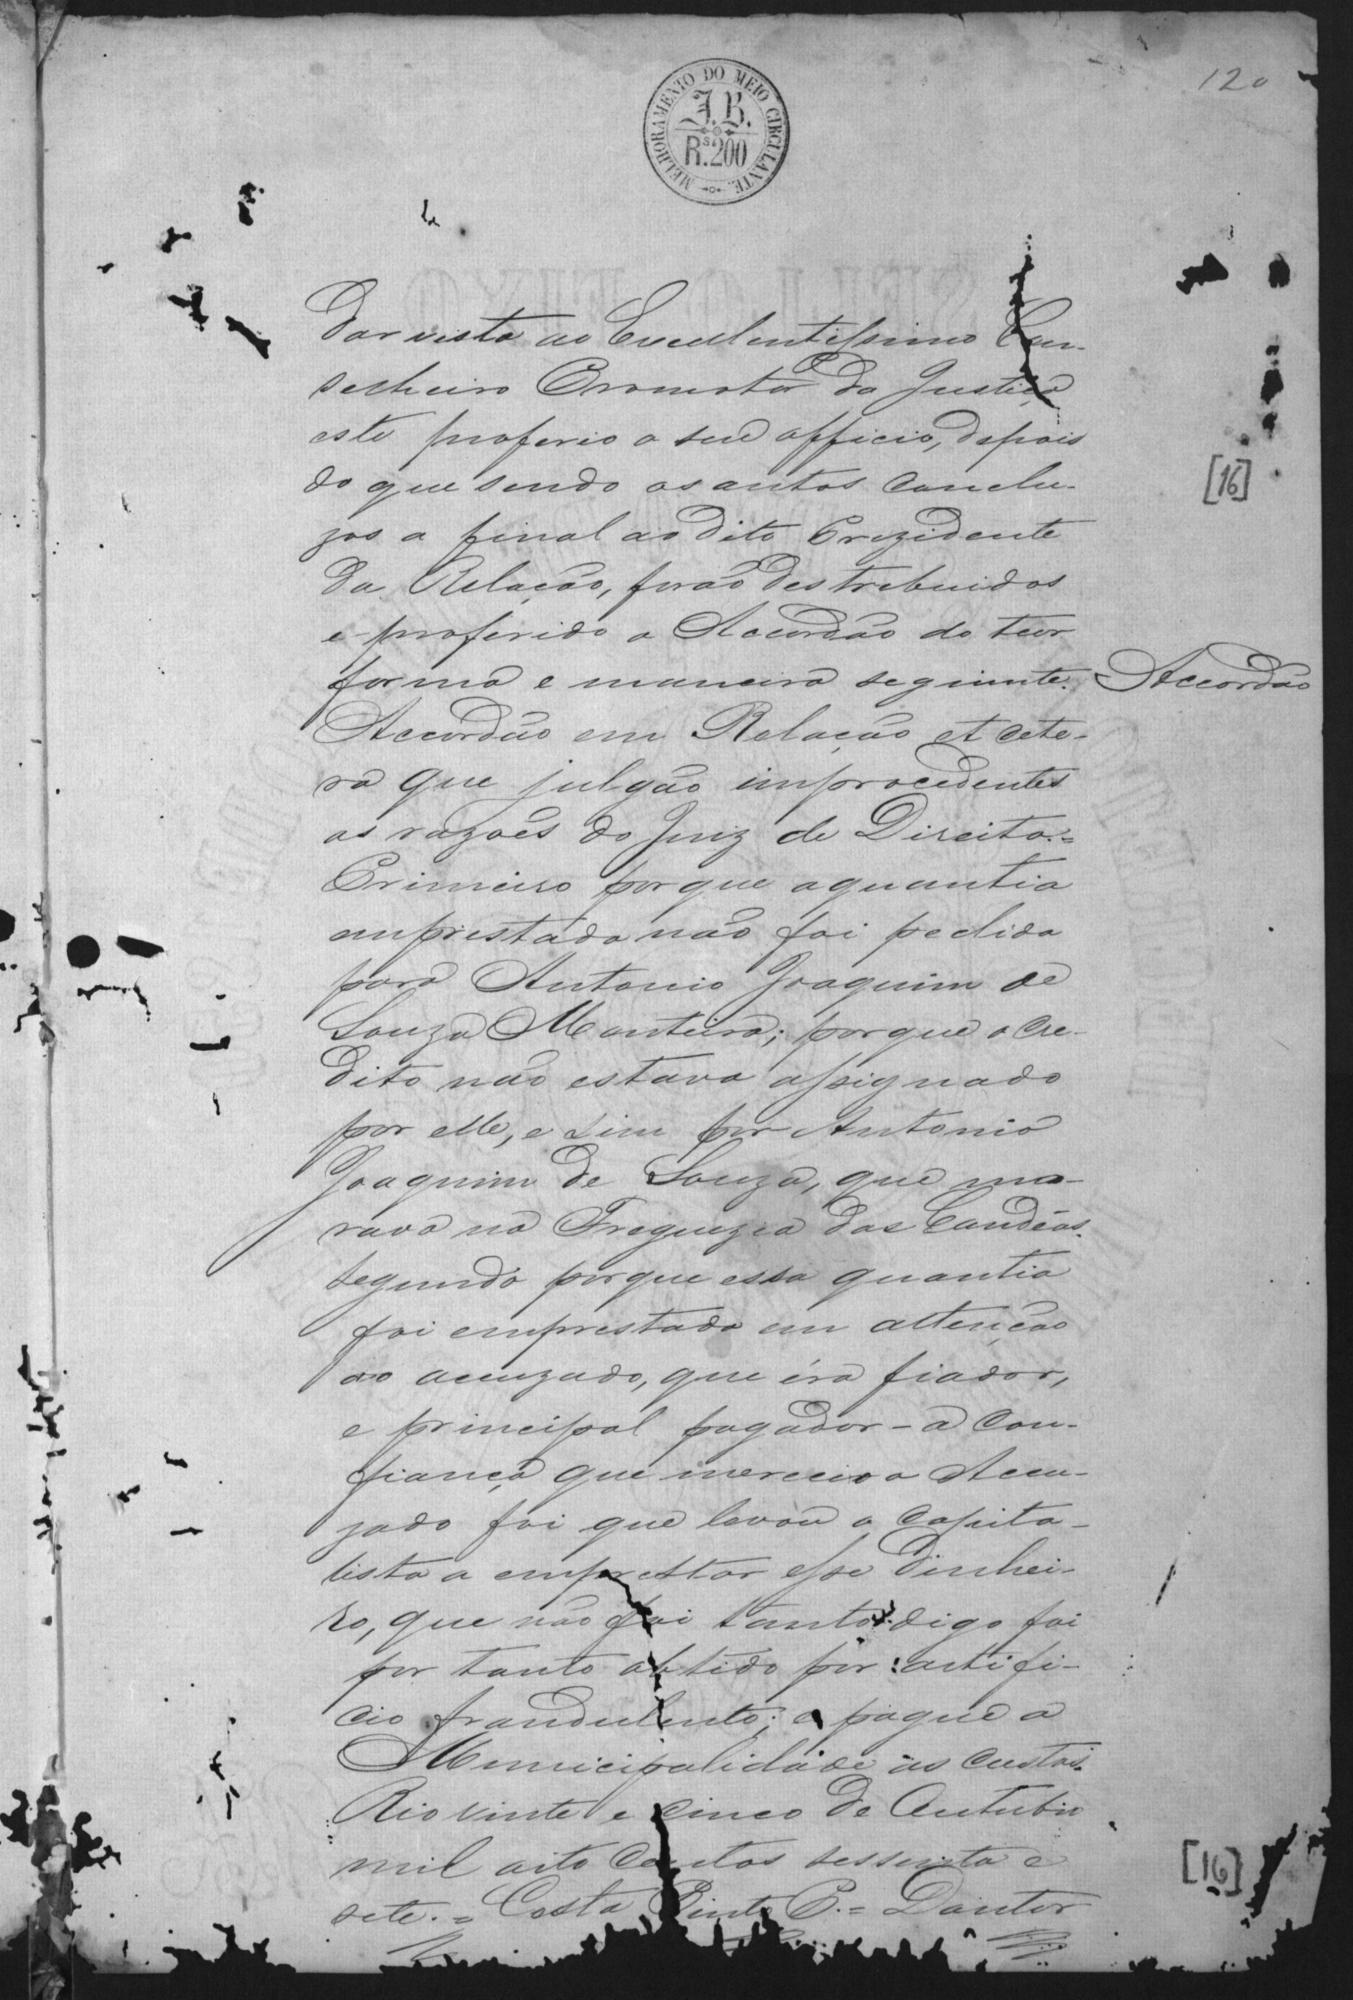 120
MELHORAMENTO DO MEIO CIRCULANTE
J. B.
Rs. 200
dar vista ao Excellentissimo Con-
selheiro Promotor da Justiça
este proferio o seu officio, depois
do que sendo os autos conclu-
zos a final ao dito Prezidente
da Relação, forão destrebuidos
e proferido o Accordão do teor
forma e maneira seguinte.
Accordão
Accordão em Relação et cete-
ra que julgão improcedentes
as razoēs do Juiz de Direito.=
Primeiro porque a quantia
emprestada não foi pedida
para Antonio Joaquim de
Souza Monteiro; porque o cre-
dito não estava assignado
por elle, e sim por Antonio
Joaquim de Souza, que mo-
rava na Freguezia das Candêas.
segundo porque essa quantia
foi emprestada em attenção
ao acuzado, que éra fiador,
e principal pagador - a con-
fiança que mereceio o Accu-
zado foi que levou o capita-
lista a emprestar esse dinhei-
ro, que não foi tanto digo foi
por tanto obtido por artifi-
cio fraudulento; e pague a
Municipalidade as custas.
Rio vinte e cinco de Outubro
mil oito centos sessenta e
sete.= Costa Pinto P.= Doutor
[16]
[16]